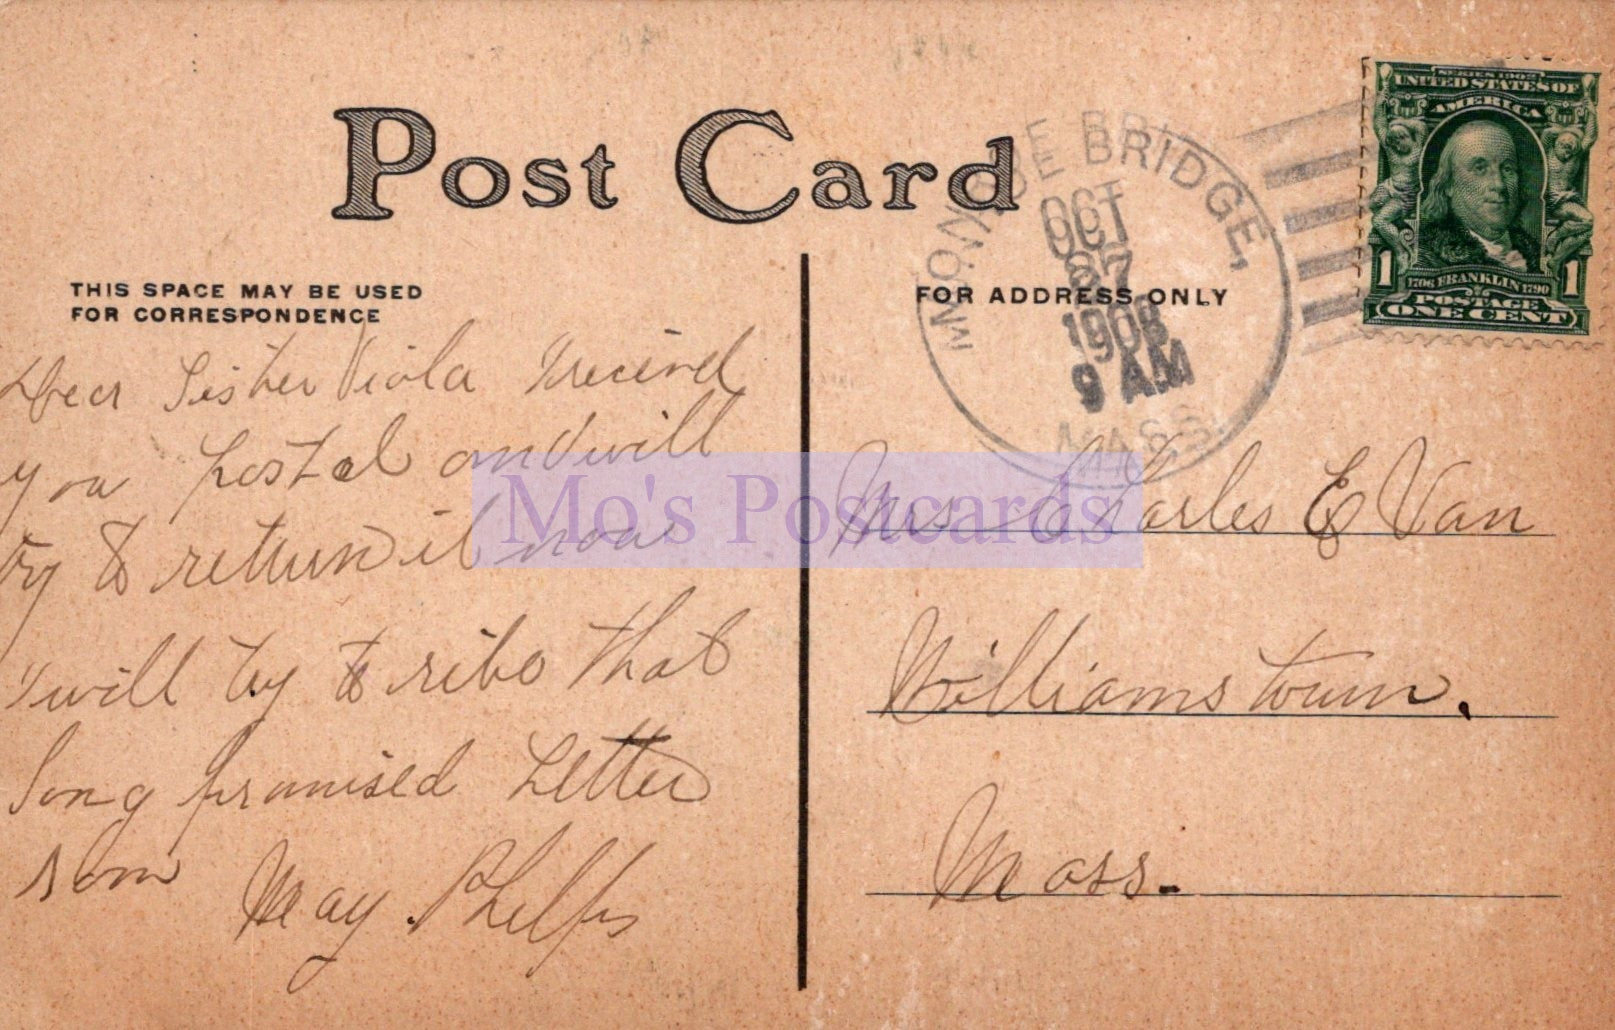 SERIES 1902
UNITED STATES OF
AMERICA
1706 FRANKLIN 1790
POSTAGE
1 1
ONE CENT
Post Card
MONROE BRIDGE,
OCT
27
1908
9 AM
MASS.
THIS SPACE MAY BE USED
FOR CORRESPONDENCE
FOR ADDRESS ONLY
Dear Sister Viola I recieved
you postal and will
try to return it now
I will try to rite that
long promised Letter
soon May Phelps
Mrs Charles E Van
Williamstown.
Mass.
Mo's Postcards